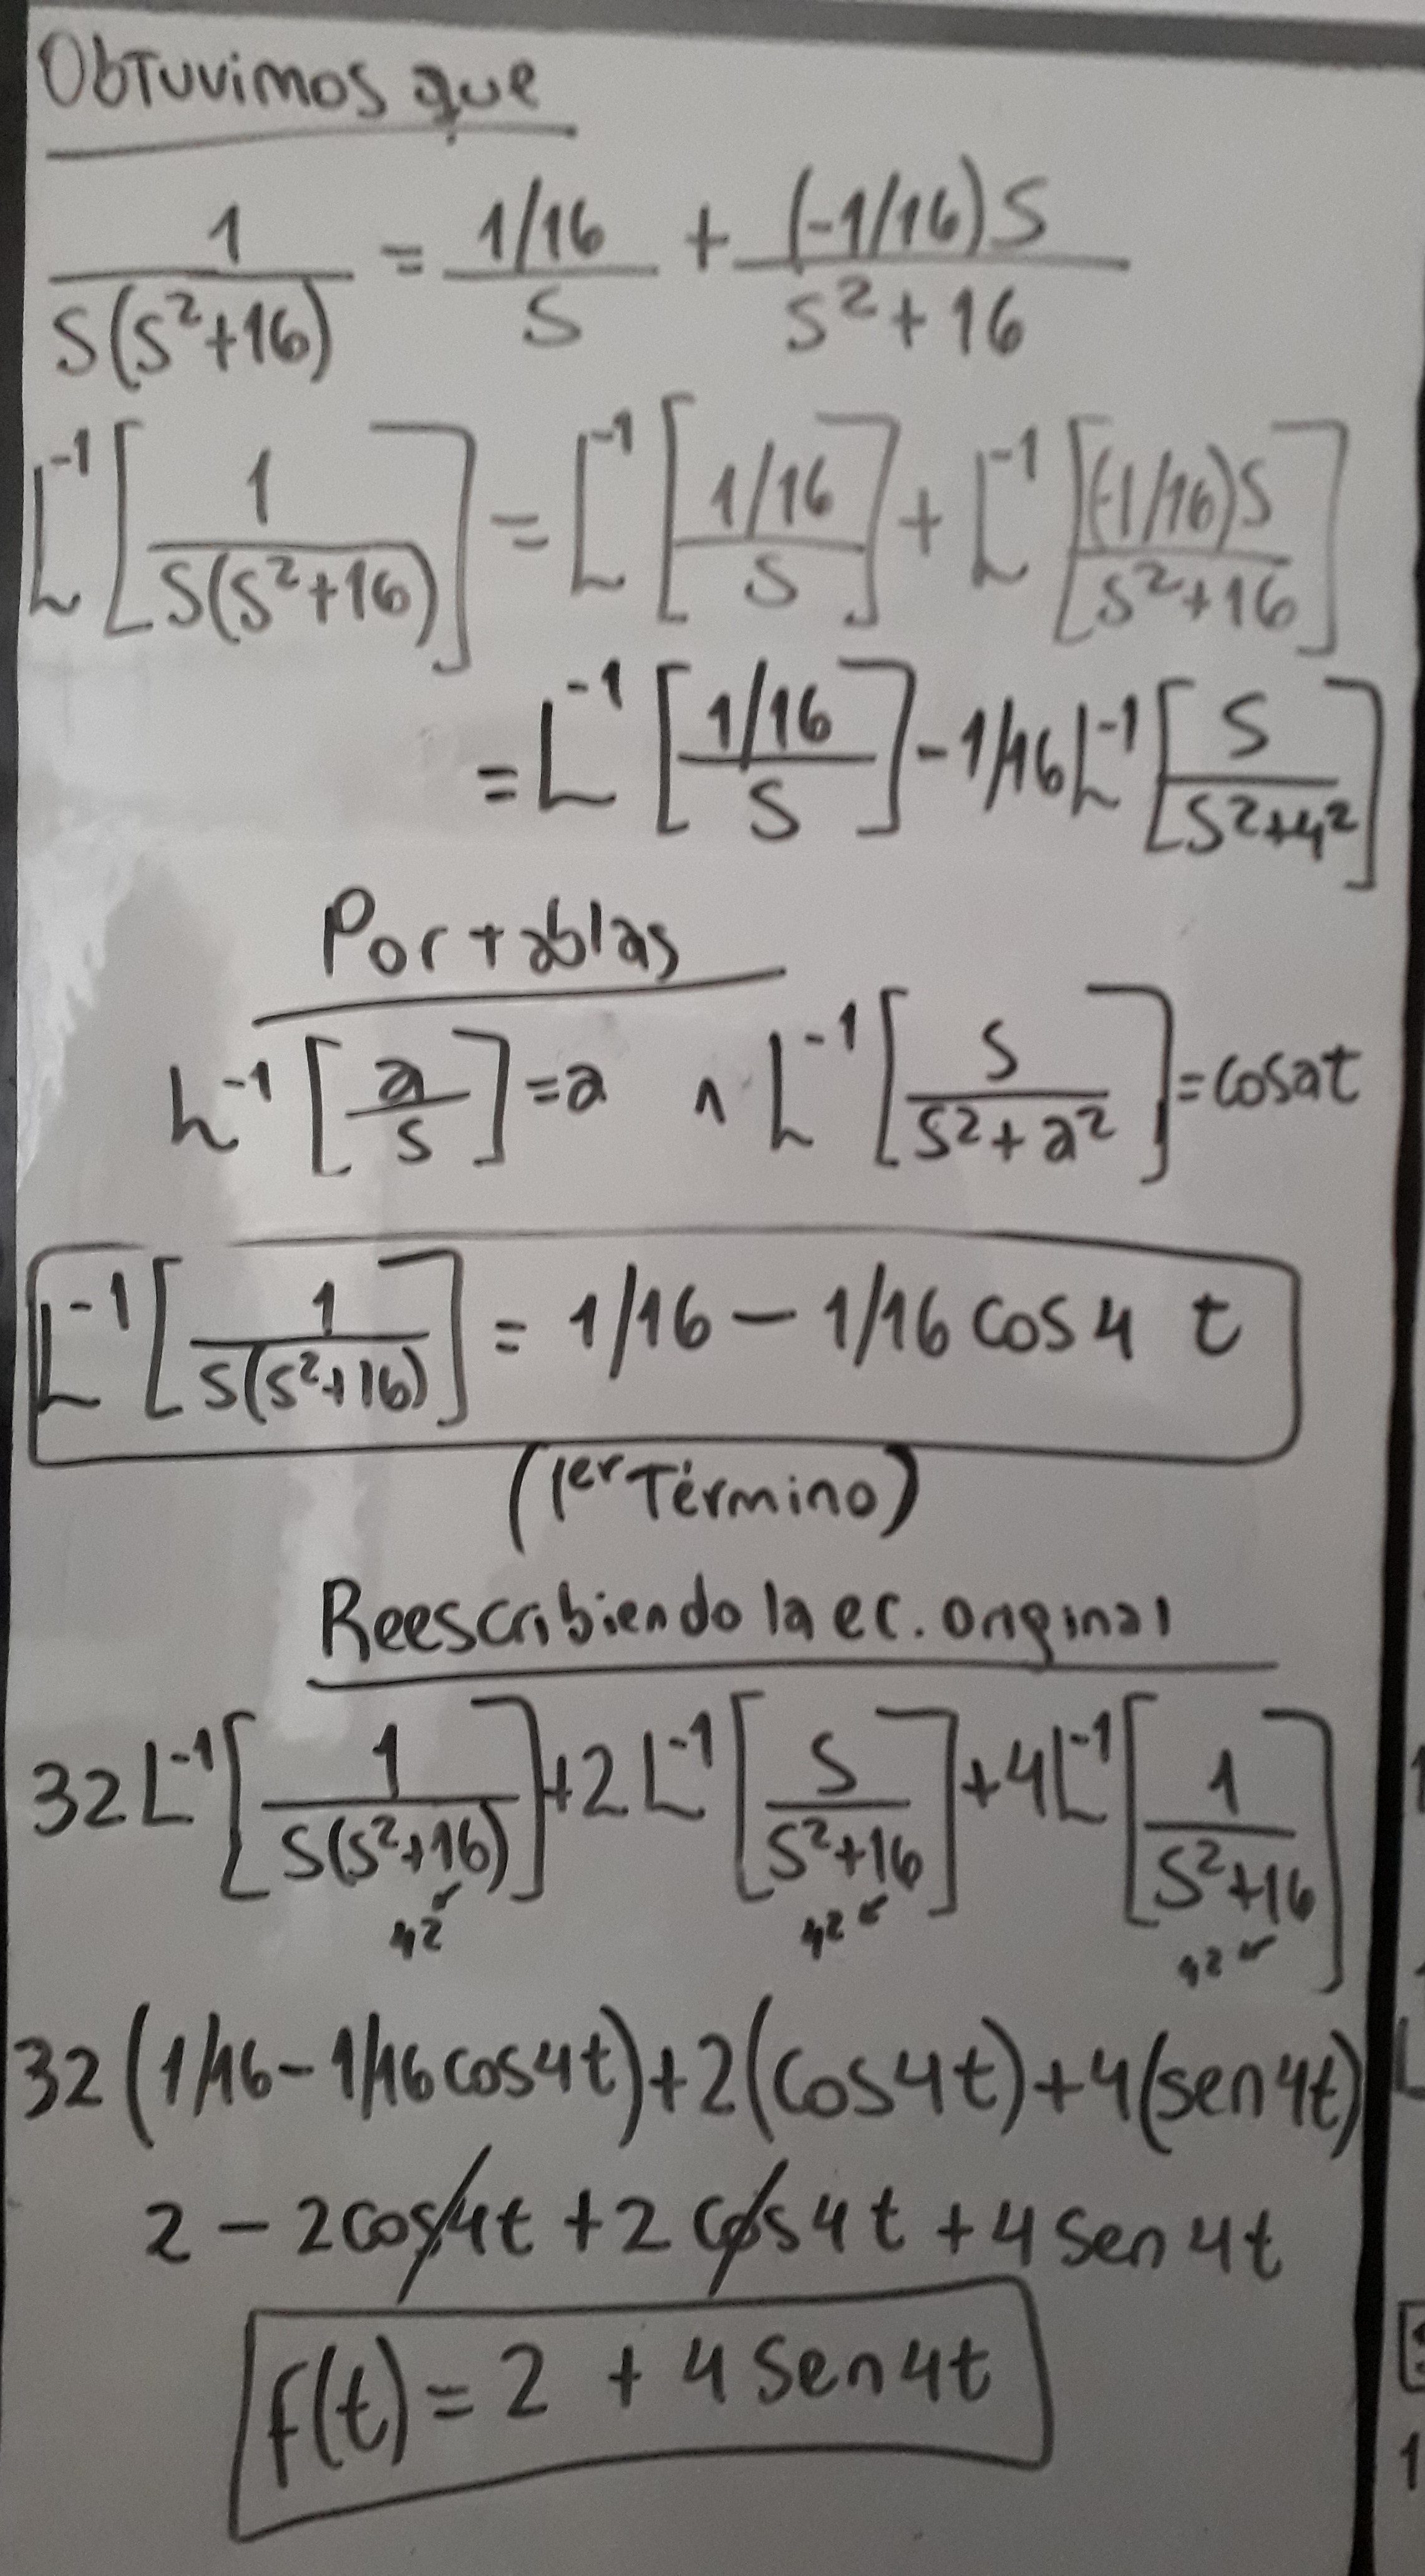 Obtuvimos que
1/(S(S²+16)) = (1/16)/S + ((-1/16)S)/(S²+16)
L⁻¹[1/(S(S²+16))] = L⁻¹[(1/16)/S] + L⁻¹[((-1/16)S)/(S²+16)]
= L⁻¹[(1/16)/S] - 1/16 L⁻¹[S/(S²+4²)]
Por tablas
L⁻¹[a/s] = a ∧ L⁻¹[s/(s²+a²)] = cosat
L⁻¹[1/(s(s²+16))] = 1/16 - 1/16 cos4 t
(1er Término)
Reescribiendo la ec. original
32L⁻¹[1/(s(s²+16))] + 2L⁻¹[s/(s²+16)] + 4L⁻¹[1/(s²+16)]
4² 4² 4²
32(1/16 - 1/16cos4t) + 2(cos4t) + 4(sen4t)
2 - 2cos4t + 2cos4t + 4sen4t
f(t) = 2 + 4sen4t